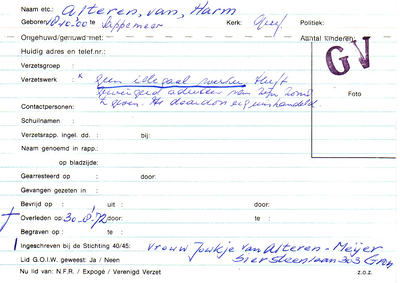 Naam etc.: Alteren, van, Harm
Geboren: 10.10.00 te Sappemeer Kerk: Geref Politiek:
Ongehuwd/gehuwd met: Aantal kinderen:
Huidig adres en telef.nr.:
GV
Verzetsgroep :
Verzetswerk : x geen illegaal werker Heeft
geweigerd adressen van zijn zoons
te geven. Is daardoor erg mishandeld.
Foto
Contactpersonen:
Schuilnaam :
Verzetsrapp. ingel. dd. : bij:
Naam genoemd in rapp.:
op bladzijde:
Gearresteerd op : door:
Gevangen gezeten in :
Bevrijd op : uit : door:
† Overleden op : 30-8-'72 door: te :
Begraven op : te :
Ingeschreven bij de Stichting 40/45: Vrouw Joukje van Alteren - Meijer
Lid G.O.I.W. geweest: Ja / Neen Siersteenlaan 303 Gron
Nu lid van: N.F.R. / Expogé / Verenigd Verzet z.o.z.